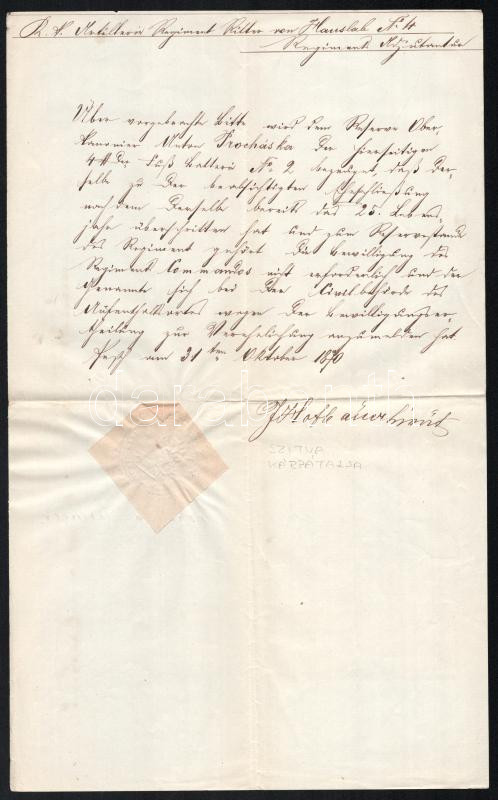 K. k. Artillerie Regiment Ritter von Hauslab No 4
Regiments Adjutantur
Über vorgebrachte Bitte wird dem Reserve Ober
kanonier Anton Procháska der hierseitigen
4 Fuß Batterie No 2 bezeugt, daß der-
selbe zu der beabsichtigten Eheschließung
nachdem Derselbe bereits das 25. Lebens
jahr überschritten hat und zum Reservestande
des Regiments gehört die Bewilligung des
Regiments Commandos nicht erforderlich und der
Genannte sich bei der Civilbehörde des
Aufenthaltsortes wegen der Bewilligungser-
theilung zur Verehelichung anzumelden hat.
Pest am 31ten Oktober 1870
SZITNA
KÁRPÁTALJA
darabanth